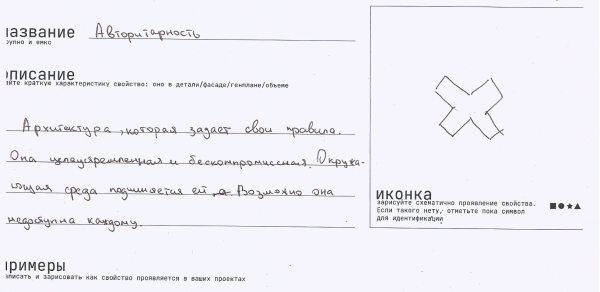 название Авторитарность
крупно и емко
описание
дайте краткую характеристику свойство: оно в детали/фасаде/генплане/объеме
Архитектура, которая задает свои правила.
Она целеустремленная и бескомпромиссная. Окружа-
ющая среда подчиняется ей. Возможно она
недоступна каждому.
иконка
зарисуйте схематично проявление свойства.
Если такого нету, отметьте пока символ
для идентификации
примеры
описать и зарисовать как свойство проявляется в ваших проектах